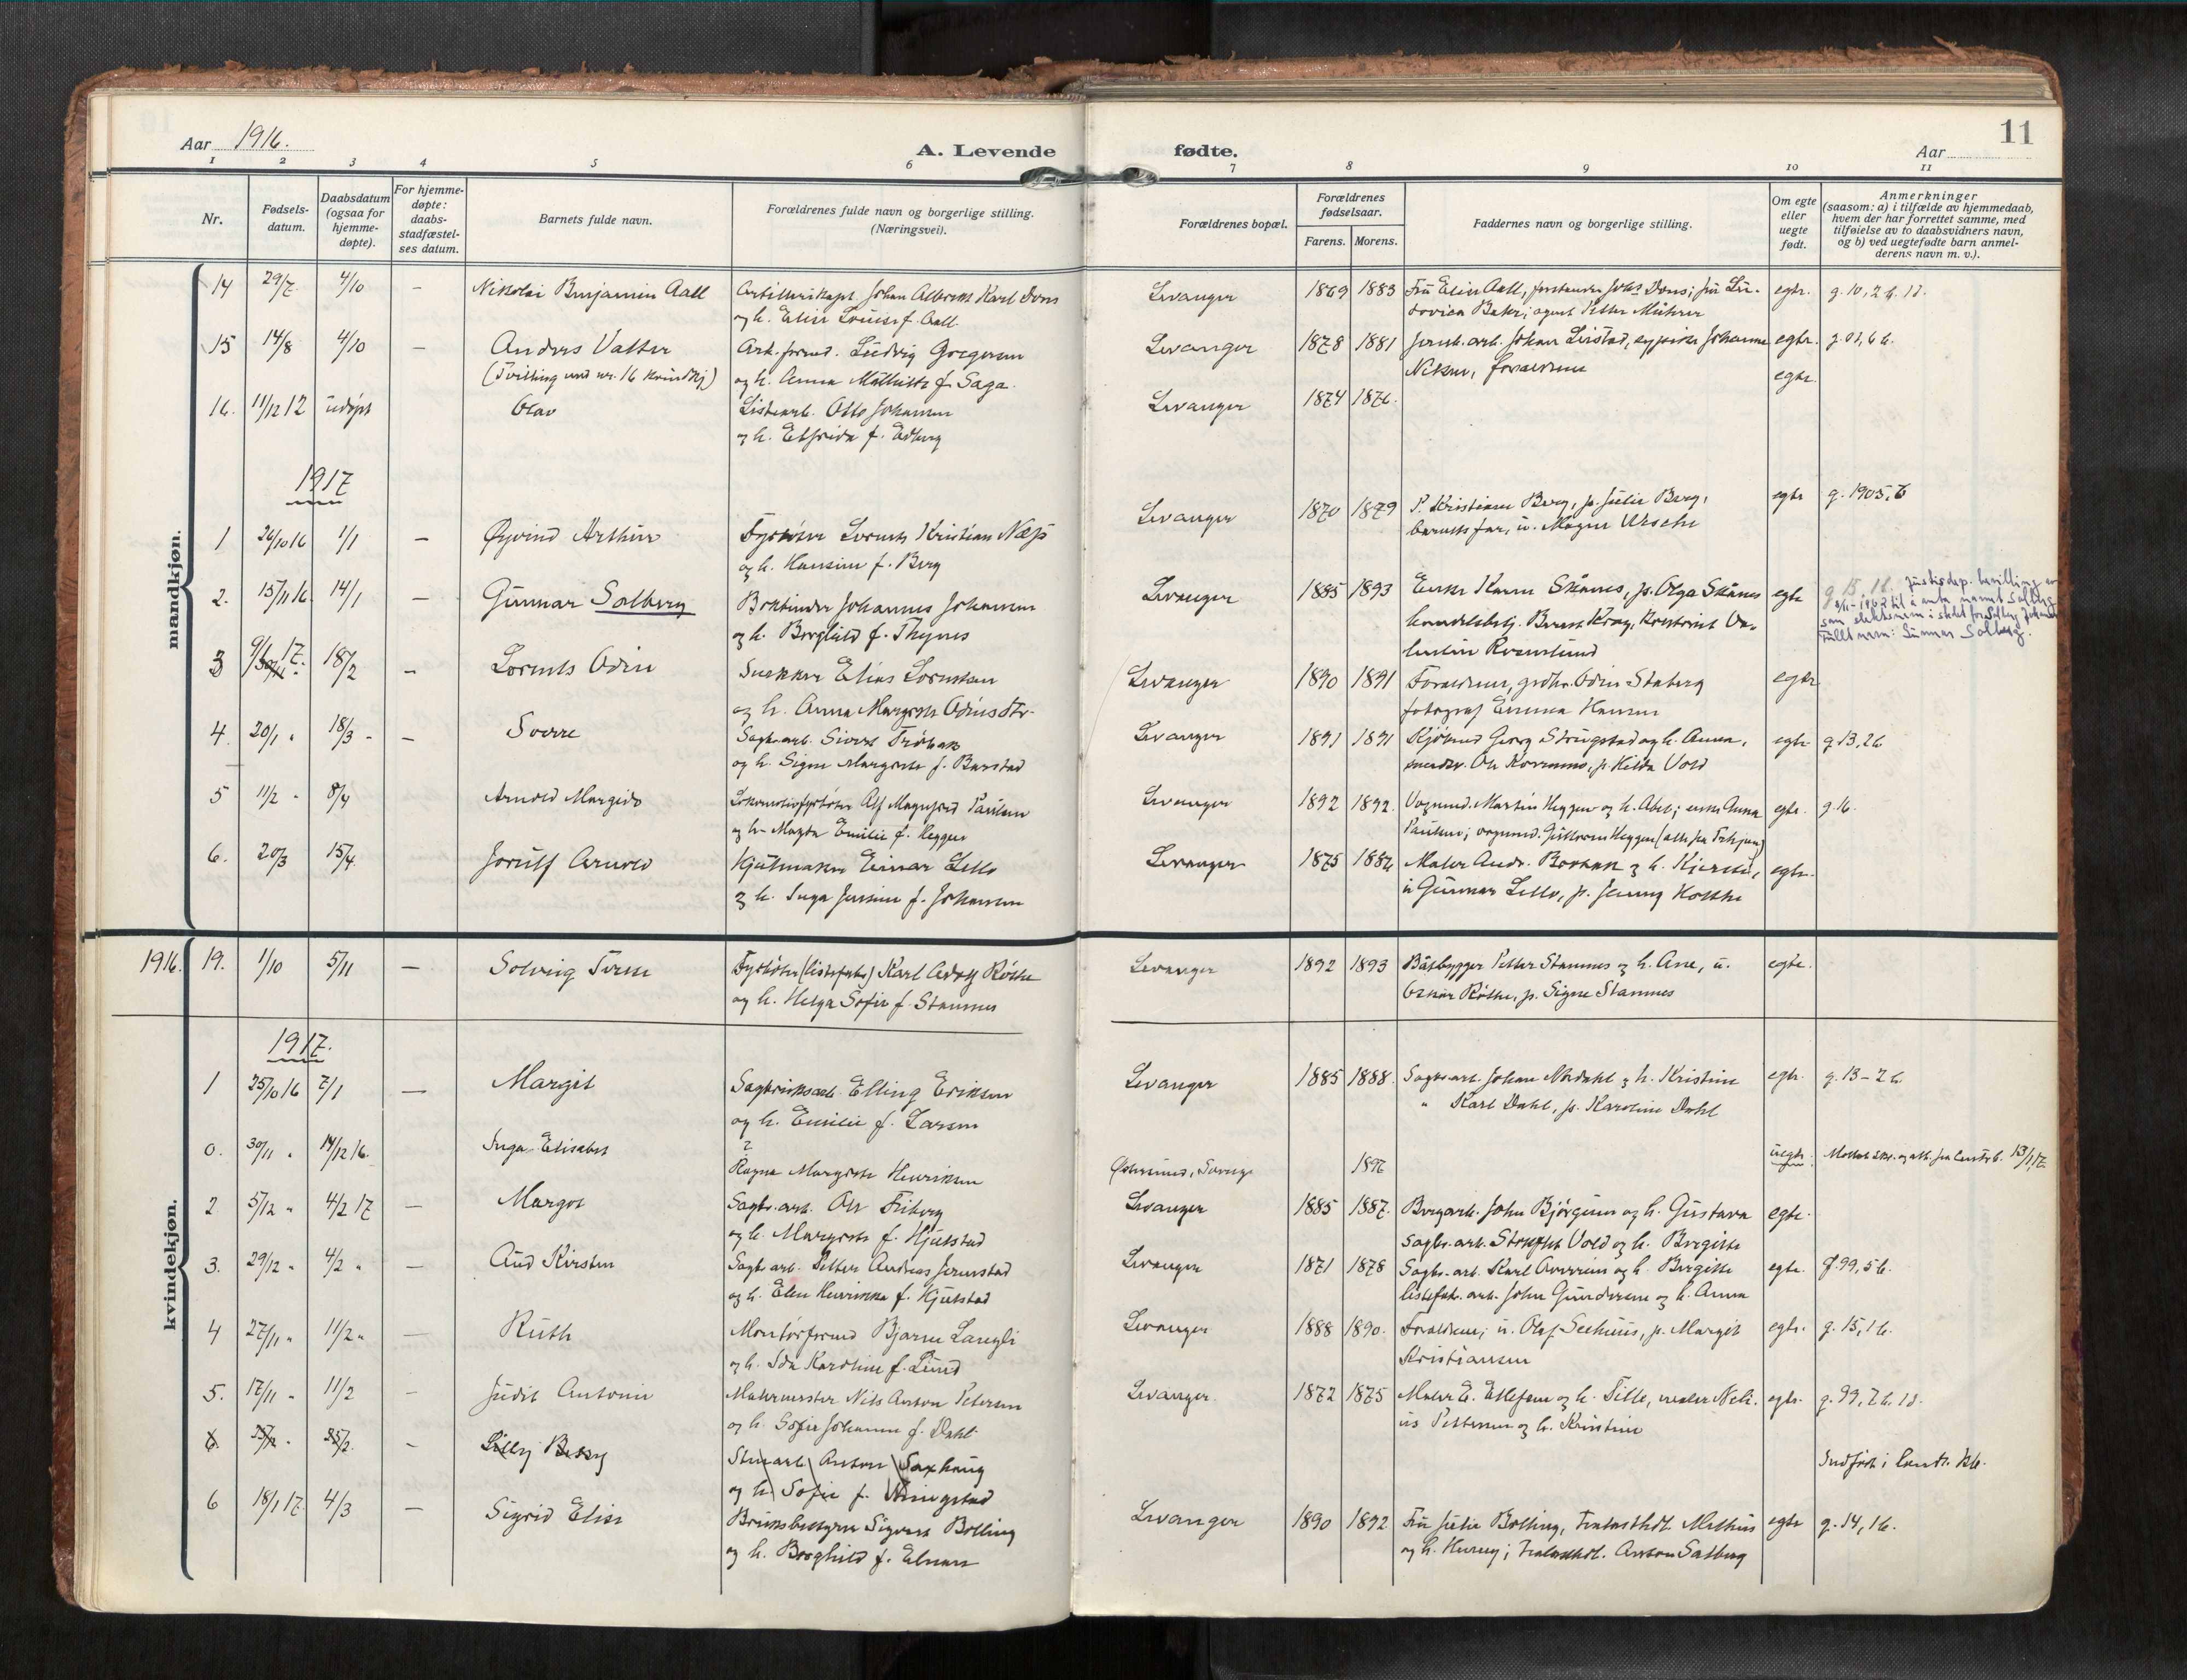 Aar 1916.
A. Levende fødte.
Aar
11
1 2 3 4 5 6 7 8 9 10 11
Nr.
Fødsels-
datum.
Daabsdatum
(ogsaa for
hjemme-
døpte).
For hjemme-
døpte:
daabs-
stadfæstel-
ses datum.
Barnets fulde navn.
Forældrenes fulde navn og borgerlige stilling.
(Næringsvei).
Forældrenes bopæl.
Forældrenes
fødselsaar.
Farens. Morens.
Faddernes navn og borgerlige stilling.
Om egte
eller
uegte
født.
Anmerkninger
(saasom: a) i tilfælde av hjemmedaab,
hvem der har forrettet samme, med
tilføielse av to daabsvidners navn,
og b) ved uegtefødte barn anmel-
derens navn m. v.).
mandkjøn.
14 29/7 4/10 – Nikolai Benjamin Aall Artillerikapt. Johan Albrecht Karl Dons Levanger 1869 1883 Fru Elise Aall, Dons; fru Lu- egte. g. 10, 2 b. 1 d.
og h. Elise Louise f. Aall dovica Bakke; agent Petter Mührer
15 14/8 4/10 – Anders Valter Arb. formd. Ludvig Gregersen Levanger 1878 1881 Jernb. arb. Johan Leistad, Johanne egte. g. 01, 6 b.
(Tvilling med nr. 16 kvindkj) og h. Anna Mathilde f. Saga. Nilsen, forældrene egte.
16. 11/12 12 udøpt Olav Listearb. Otto Johansen Levanger 1874 1876.
og h. Elfrida f. Edberg
1917
1 26/10 16 1/1 – Øyvind Arthur Fyrbøter Lorents Kristian Næss Levanger 1870 1879 P. Kristiane Berg, p. Julie Berg, egte g. 1905, 6
og h. Hansine f. Berg barnets far, u. Magne
2. 15/11 16. 14/1 – Gunnar Solberg Bokbinder Johannes Johansen Levanger 1885 1893 Enke Karen Skånes, p. Olga Skånes egte g. 15, 1 b. Justisdep. bevilling av
og h. Borghild f. Thynes handelsbetj. Bernt Krog, Va- til å anta navnet Solberg
lentin som slektsnavn i stedet for Johansen
Fullt navn: Gunnar Solberg.
3 9/1 17. 18/2 – Lorents Odin Snekker Elias Lorentsen Levanger 1890 1891 Forældrene, Odin Staberg egte
og h. Anna Margrete Odinsdtr. fotograf Emma Hansen
4. 20/1 " 18/3 – – Sverre Sagbr.arb. Sivert Levanger 1891 1891 Kjøbmd Georg Strugstad og h. Anna, egte g. 13, 2 b
og h. Signe Margrete f. Barstad Ole Korsmo, p. Hilda Vold
5 11/2 – 8/4 Arnold Margido Lokomotivfyrbøter Alf Magnford Paulsen Levanger 1892 1892. Vognmd. Martin Heggen og h. Abel; enke Anna egte. g. 16.
og h. Magda Emilie f. Heggen Paulsen; vognmd. Guttorm Heggen (alle fra Trhjem)
6. 20/3 15/4. Jorulf Arnold Hjulmaker Einar Lello Levanger 1875 1882 Maler Andr. og h. Kjersti, egte.
og h. Inga Jensine f. Johansen u Gunnar Lello, p. Jenny Holthe
1916. 19. 1/10 5/11 – Solveig Fyrbøter (listefabr.) Karl Adolf Røthe Levanger 1892 1893 Båtbygger Petter Stamnes og h. Ane, u. egte.
og h. Helga Sofie f. Stamnes Oskar Røthe, p. Signe Stamnes
1917.
kvindekjøn.
1 25/10 16 7/1 – Margit Sagbruksarb. Elling Eriksen Levanger 1885 1888. Sagbr.arb. Johan Nordahl og h. Kristine egte. g. 13 – 2 b.
og h. Emilie f. Larsen " Karl Dahl, p. Karoline Dahl
0. 30/11 " 14/12 16. Inga Elisabet ?
Ragna Margrete Henriksen Østersund, Sverige 1896 uegte. 13/1 17.
2 5/12 " 4/2 17 – Margot Sagbr. arb. Ole Friberg Levanger 1885 1887. Brygarb. John Bjørgum og h. Gustava egte.
og h. Margrete f. Hjulstad Sagbr. arb. Vold og h. Bergitte
3. 29/12 " 4/2 " – Aud Kirsten Sagbr arb. Petter Andreas Jernstad Levanger 1871 1878 Sagbr. arb. Karl og h. Bergitte egte. g. 99, 5 b.
og h. Elen Henrikka f. Hjulstad listefabr. arb. John Gundersen og h. Anna
4 27/11 " 11/2 " – Ruth Montørformd Bjarne Langli Levanger 1888 1890. Forældrene; u. Olaf Seehuus, p. Margit egte. g. 15, 1 b.
og h. Ida Karoline f. Lund Kristiansen
5. 17/11 – 11/2 – Judit Antonie Malermester Nils Anton Petersen Levanger 1872 1875 Maler E. Ellefsen og h. Tille, maler Neli- egte. g. 99, 7 b. 1 d.
og h. Sofie Johanne f. Dahl us Pettersen og h. Kristine
6. – Lilly Betsy Stenarb. Anton Saxhaug Indført i landb. kb.
og h. Sofie f. Ringstad
6 18/1 17. 4/3 – Sigrid Elise Bruksbestyrer Sigvart Bolling Levanger 1890 1892 Fru Julie Bolling, Mathias egte g. 14, 1 b.
og h. Borghild f. og h. Henny; Anton Salberg